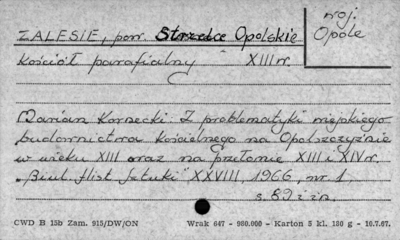 woj.
Opole
ZALESIE, pow. Strzelce Opolskie
Kościół parafialny XIII w.
Marian Kornecki. Z problematyki wiejskiego
budownictwa kościelnego na Opolszczyźnie
w wieku XIII oraz na przełomie XIII i XIV w.
"Biul. Hist Sztuki" XXVIII, 1966, nr 1,
s. 89 i in.
CWD B 15b Zam. 915/DW/ON Wrak 647 - 980.000 - Karton 5 kl. 180 g - 10.7.67.